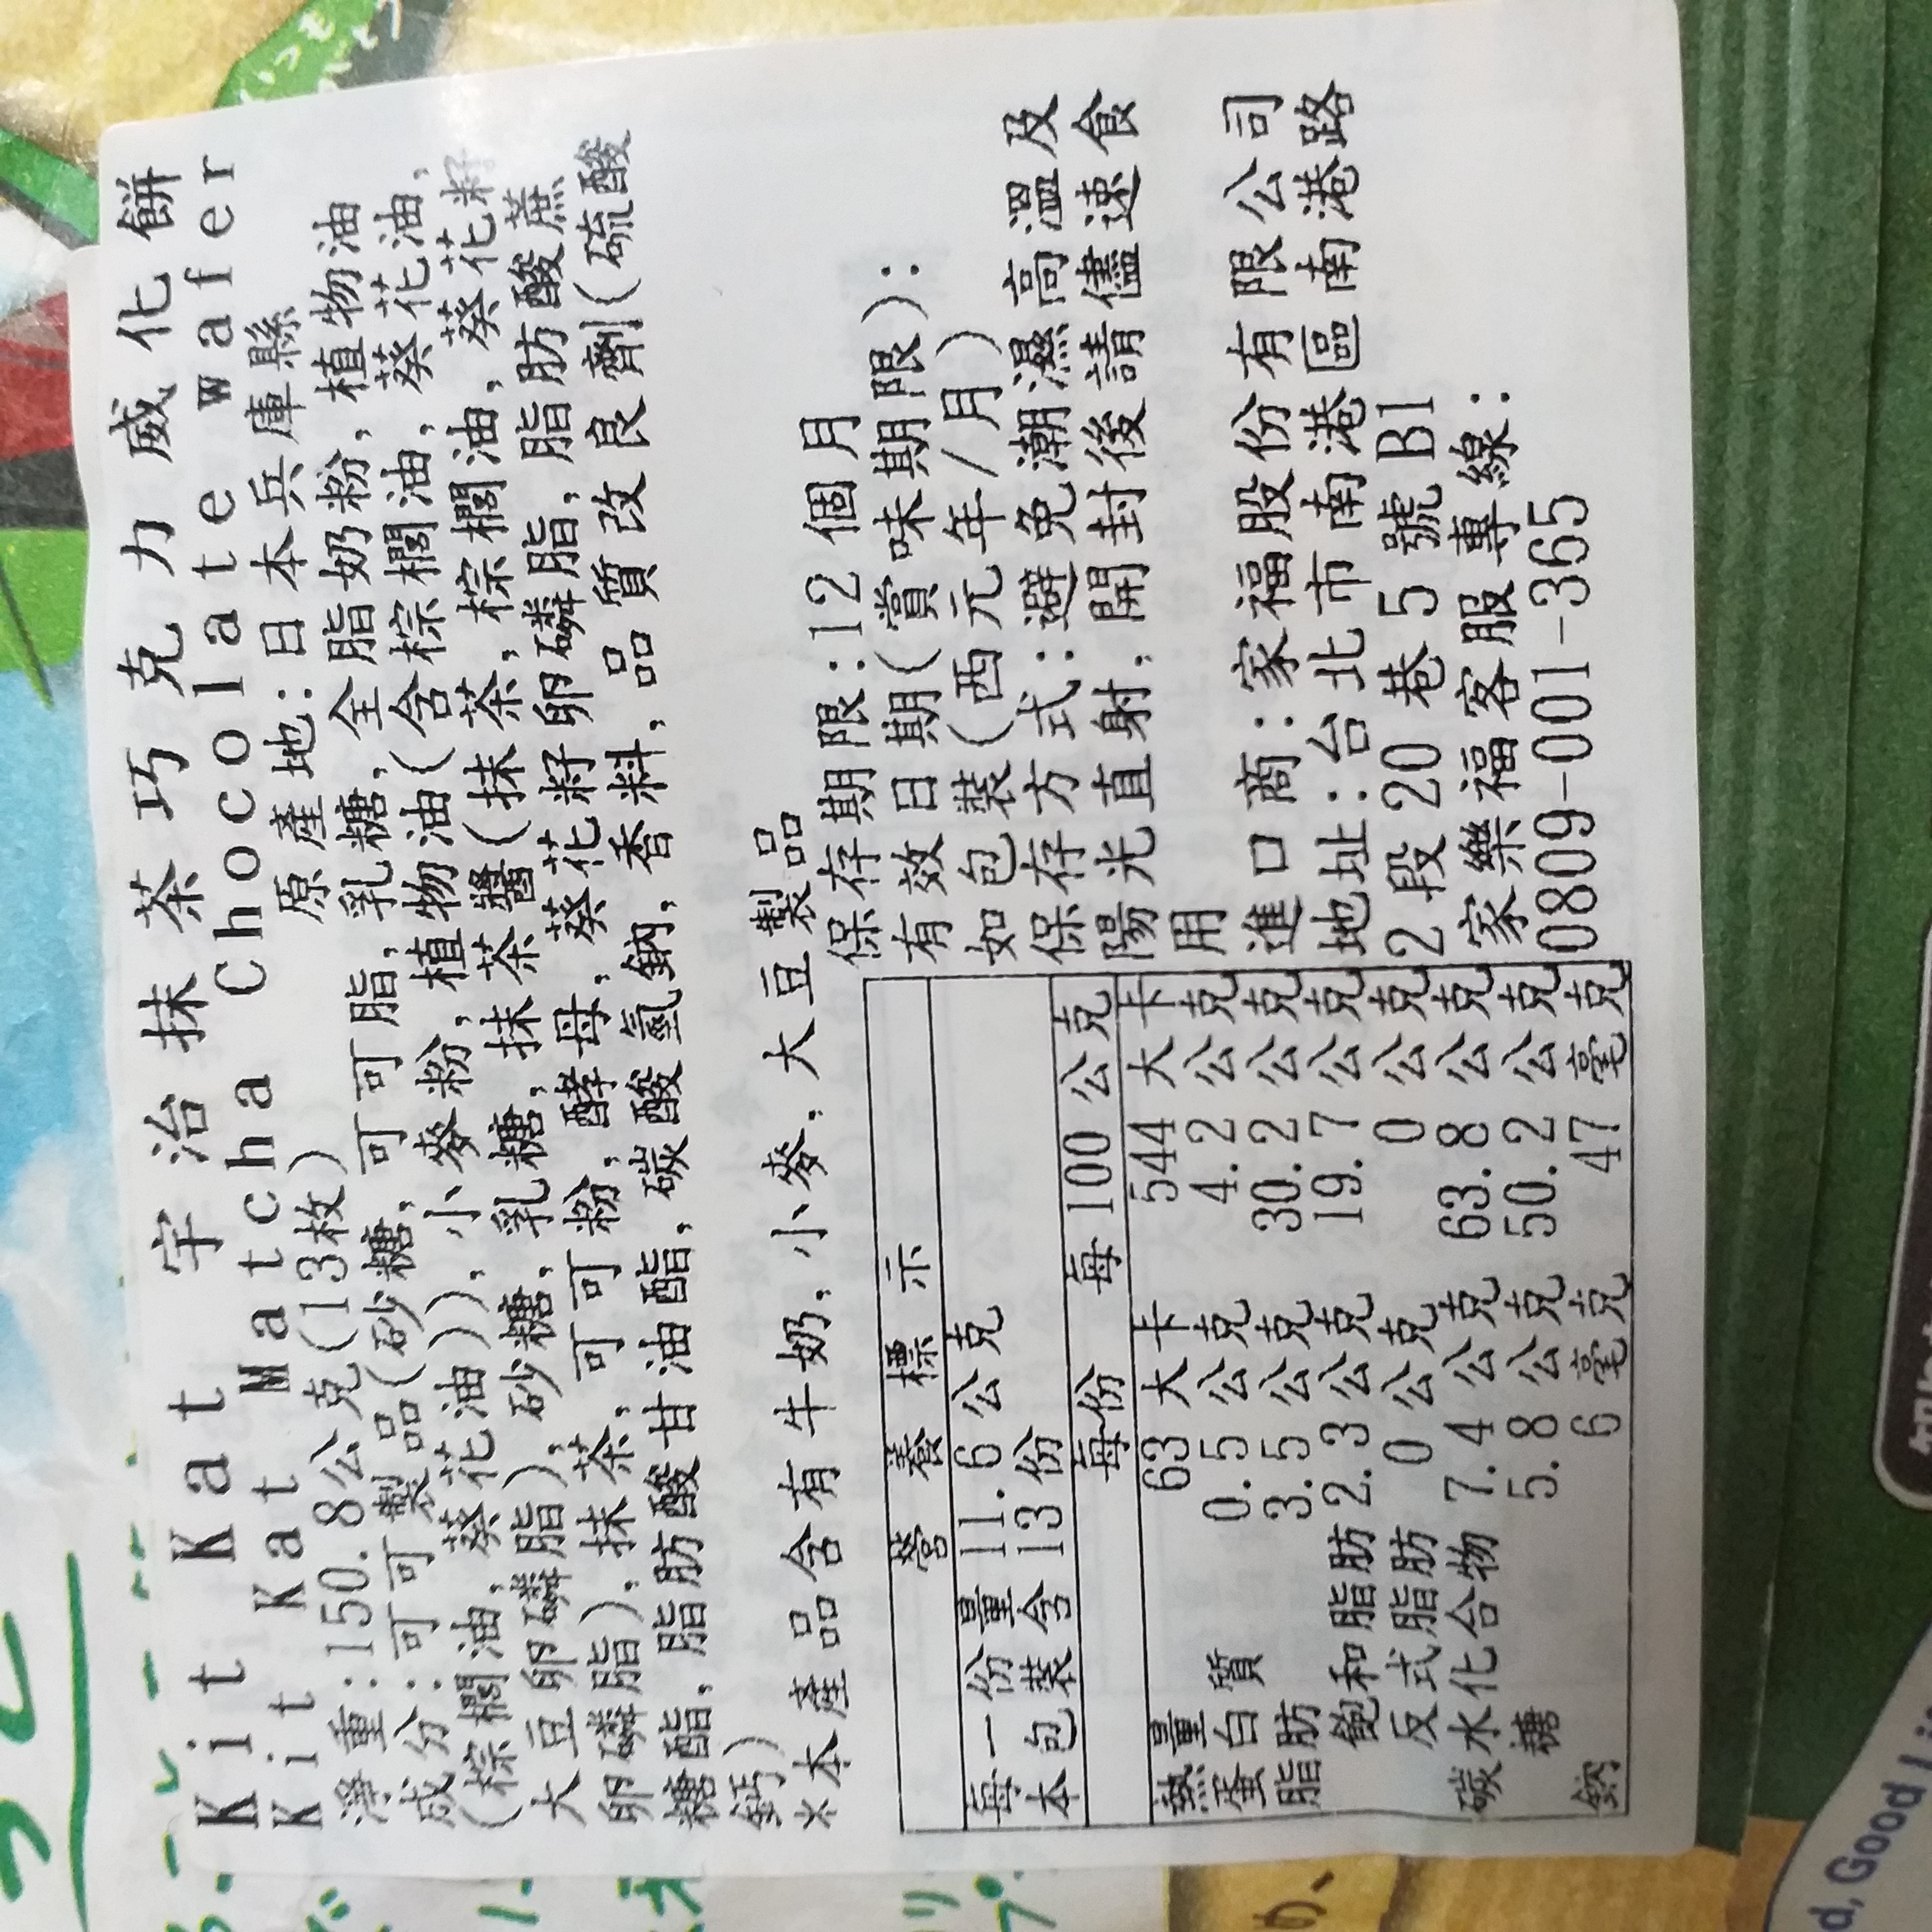 Kit Kat 宇治抹茶巧克力威化餅
Kit Kat Matcha Chocolate wafer
淨重:150.8公克(13枚) 原產地:日本兵庫縣
成分:可可製品(砂糖,可可脂,乳糖,全脂奶粉,植物油
(棕櫚油,葵花油)),小麥粉,植物油(含棕櫚油,葵花油,
大豆卵磷脂),砂糖,乳糖,抹茶醬(抹茶,棕櫚油,葵花籽
卵磷脂),抹茶,可可粉,酵母,葵花籽卵磷脂,脂肪酸蔗
糖酯,脂肪酸甘油酯,碳酸氫鈉,香料,品質改良劑(硫酸
鈣)
※本產品含有牛奶,小麥,大豆製品
營養標示
每一份量 11.6公克
本包裝含 13份
每份 每100公克
熱量 63大卡 544大卡
蛋白質 0.5公克 4.2公克
脂肪 3.5公克 30.2公克
飽和脂肪 2.3公克 19.7公克
反式脂肪 0公克 0公克
碳水化合物 7.4公克 63.8公克
糖 5.8公克 50.2公克
鈉 6毫克 47毫克
保存期限:12個月
有效日期(賞味期限):
如包裝(西元年/月)
保存方式:避免潮濕高溫及
陽光直射,開封後請儘速食
用
進口商:家福股份有限公司
地址:台北市南港區南港路
2段20巷5號B1
家樂福客服專線:
0809-001-365
d, Good Li